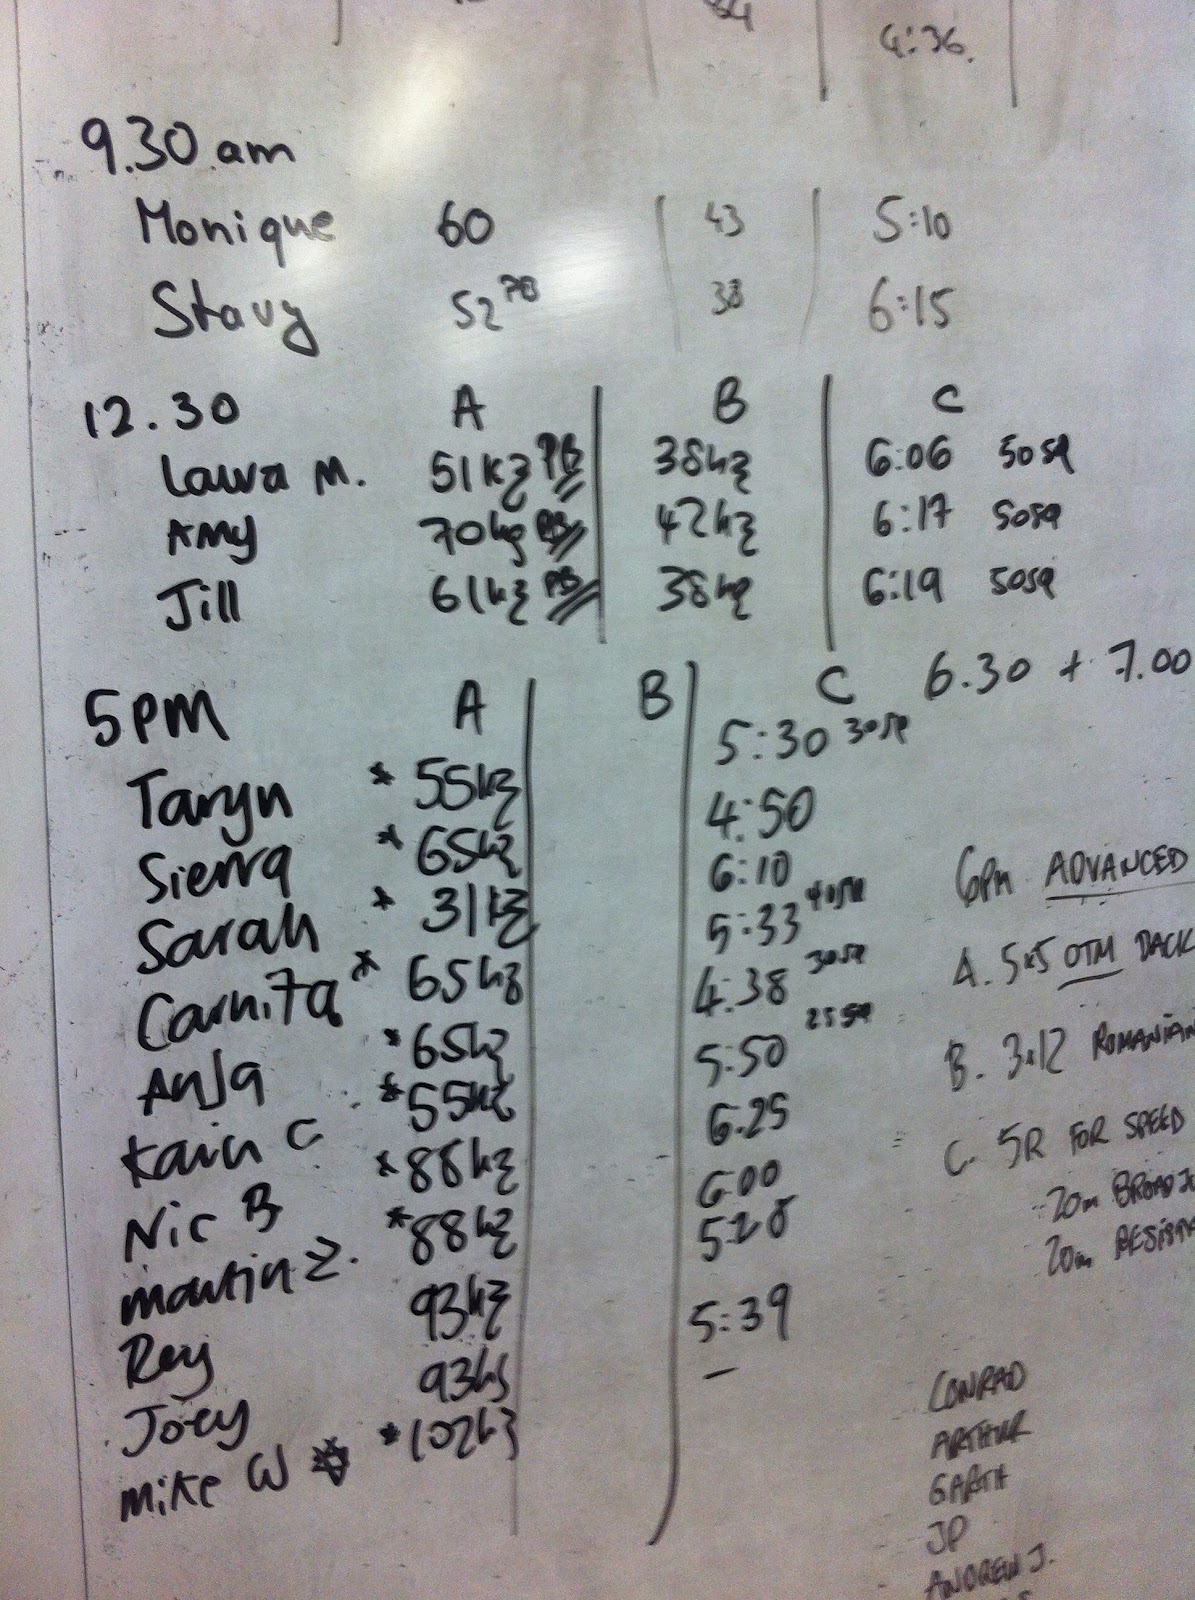 4:36.
9.30 am
Monique 60 43 5:10
Stavy 52 PB 38 6:15
12.30 A B C
Laura M. 51kg PB 38kg 6:06 50sq
Amy 70kg PB 42kg 6:17 50sq
Jill 61kg PB 38kg 6:19 50sq
5pm A B C 6.30 + 7.00
5:30 30sq
Taryn * 55kg 4:50
Sierra * 65kg 6:10
Sarah * 31kg 5:33 40sq
Carnita * 65kg 4:38 30sq
Anja * 65kg 5:50 25sq
Kain C * 55kg 6.25
Nic B * 88kg 6:00
Martin Z. * 88kg 5:28
Rey 93kg 5:39
Joey 93kg –
Mike W * 102kg
6pm ADVANCED
A. 5x5 OTM BACK
B. 3x12 ROMANIAN
C. 5R FOR SPEED
20m BROAD
20m
CONRAD
ARTHUR
GARTH
JP
ANDREW J.